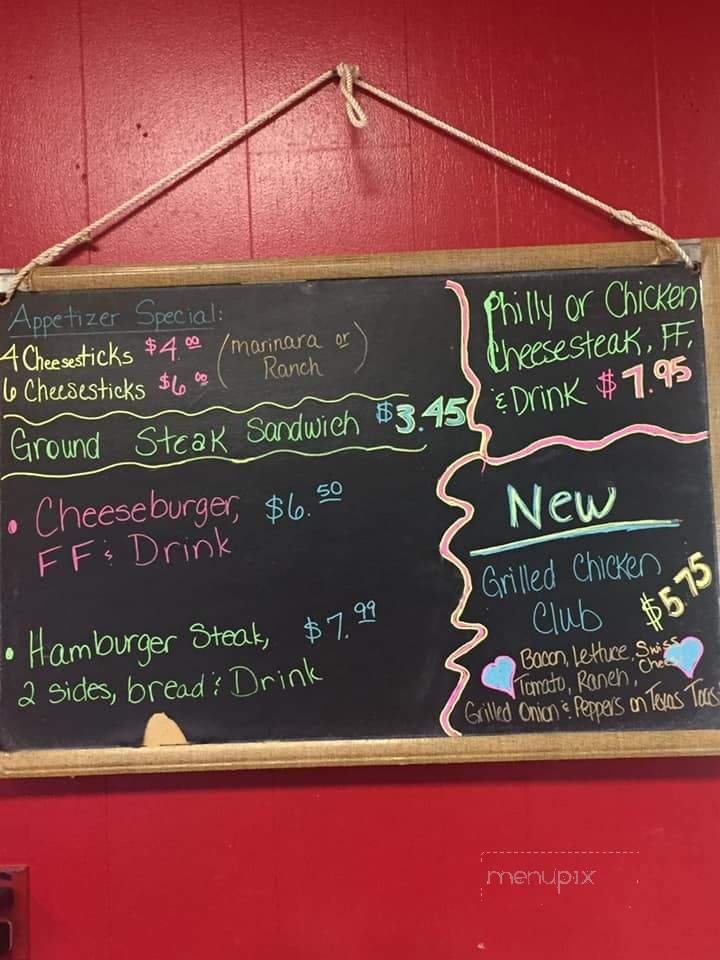 Appetizer Special:
4 Cheesesticks $4.00 (marinara or
6 Cheesesticks $6.00 Ranch)
Ground Steak Sandwich $3.45
• Cheeseburger, $6.50
FF & Drink
• Hamburger Steak, $7.99
2 sides, bread & Drink
Philly or Chicken
Cheesesteak, FF,
& Drink $7.95
New
Grilled Chicken
Club $5.75
Bacon, lettuce, Swiss
Tomato, Ranch, Chee
Grilled Onion & Peppers on Texas Toas
menupix